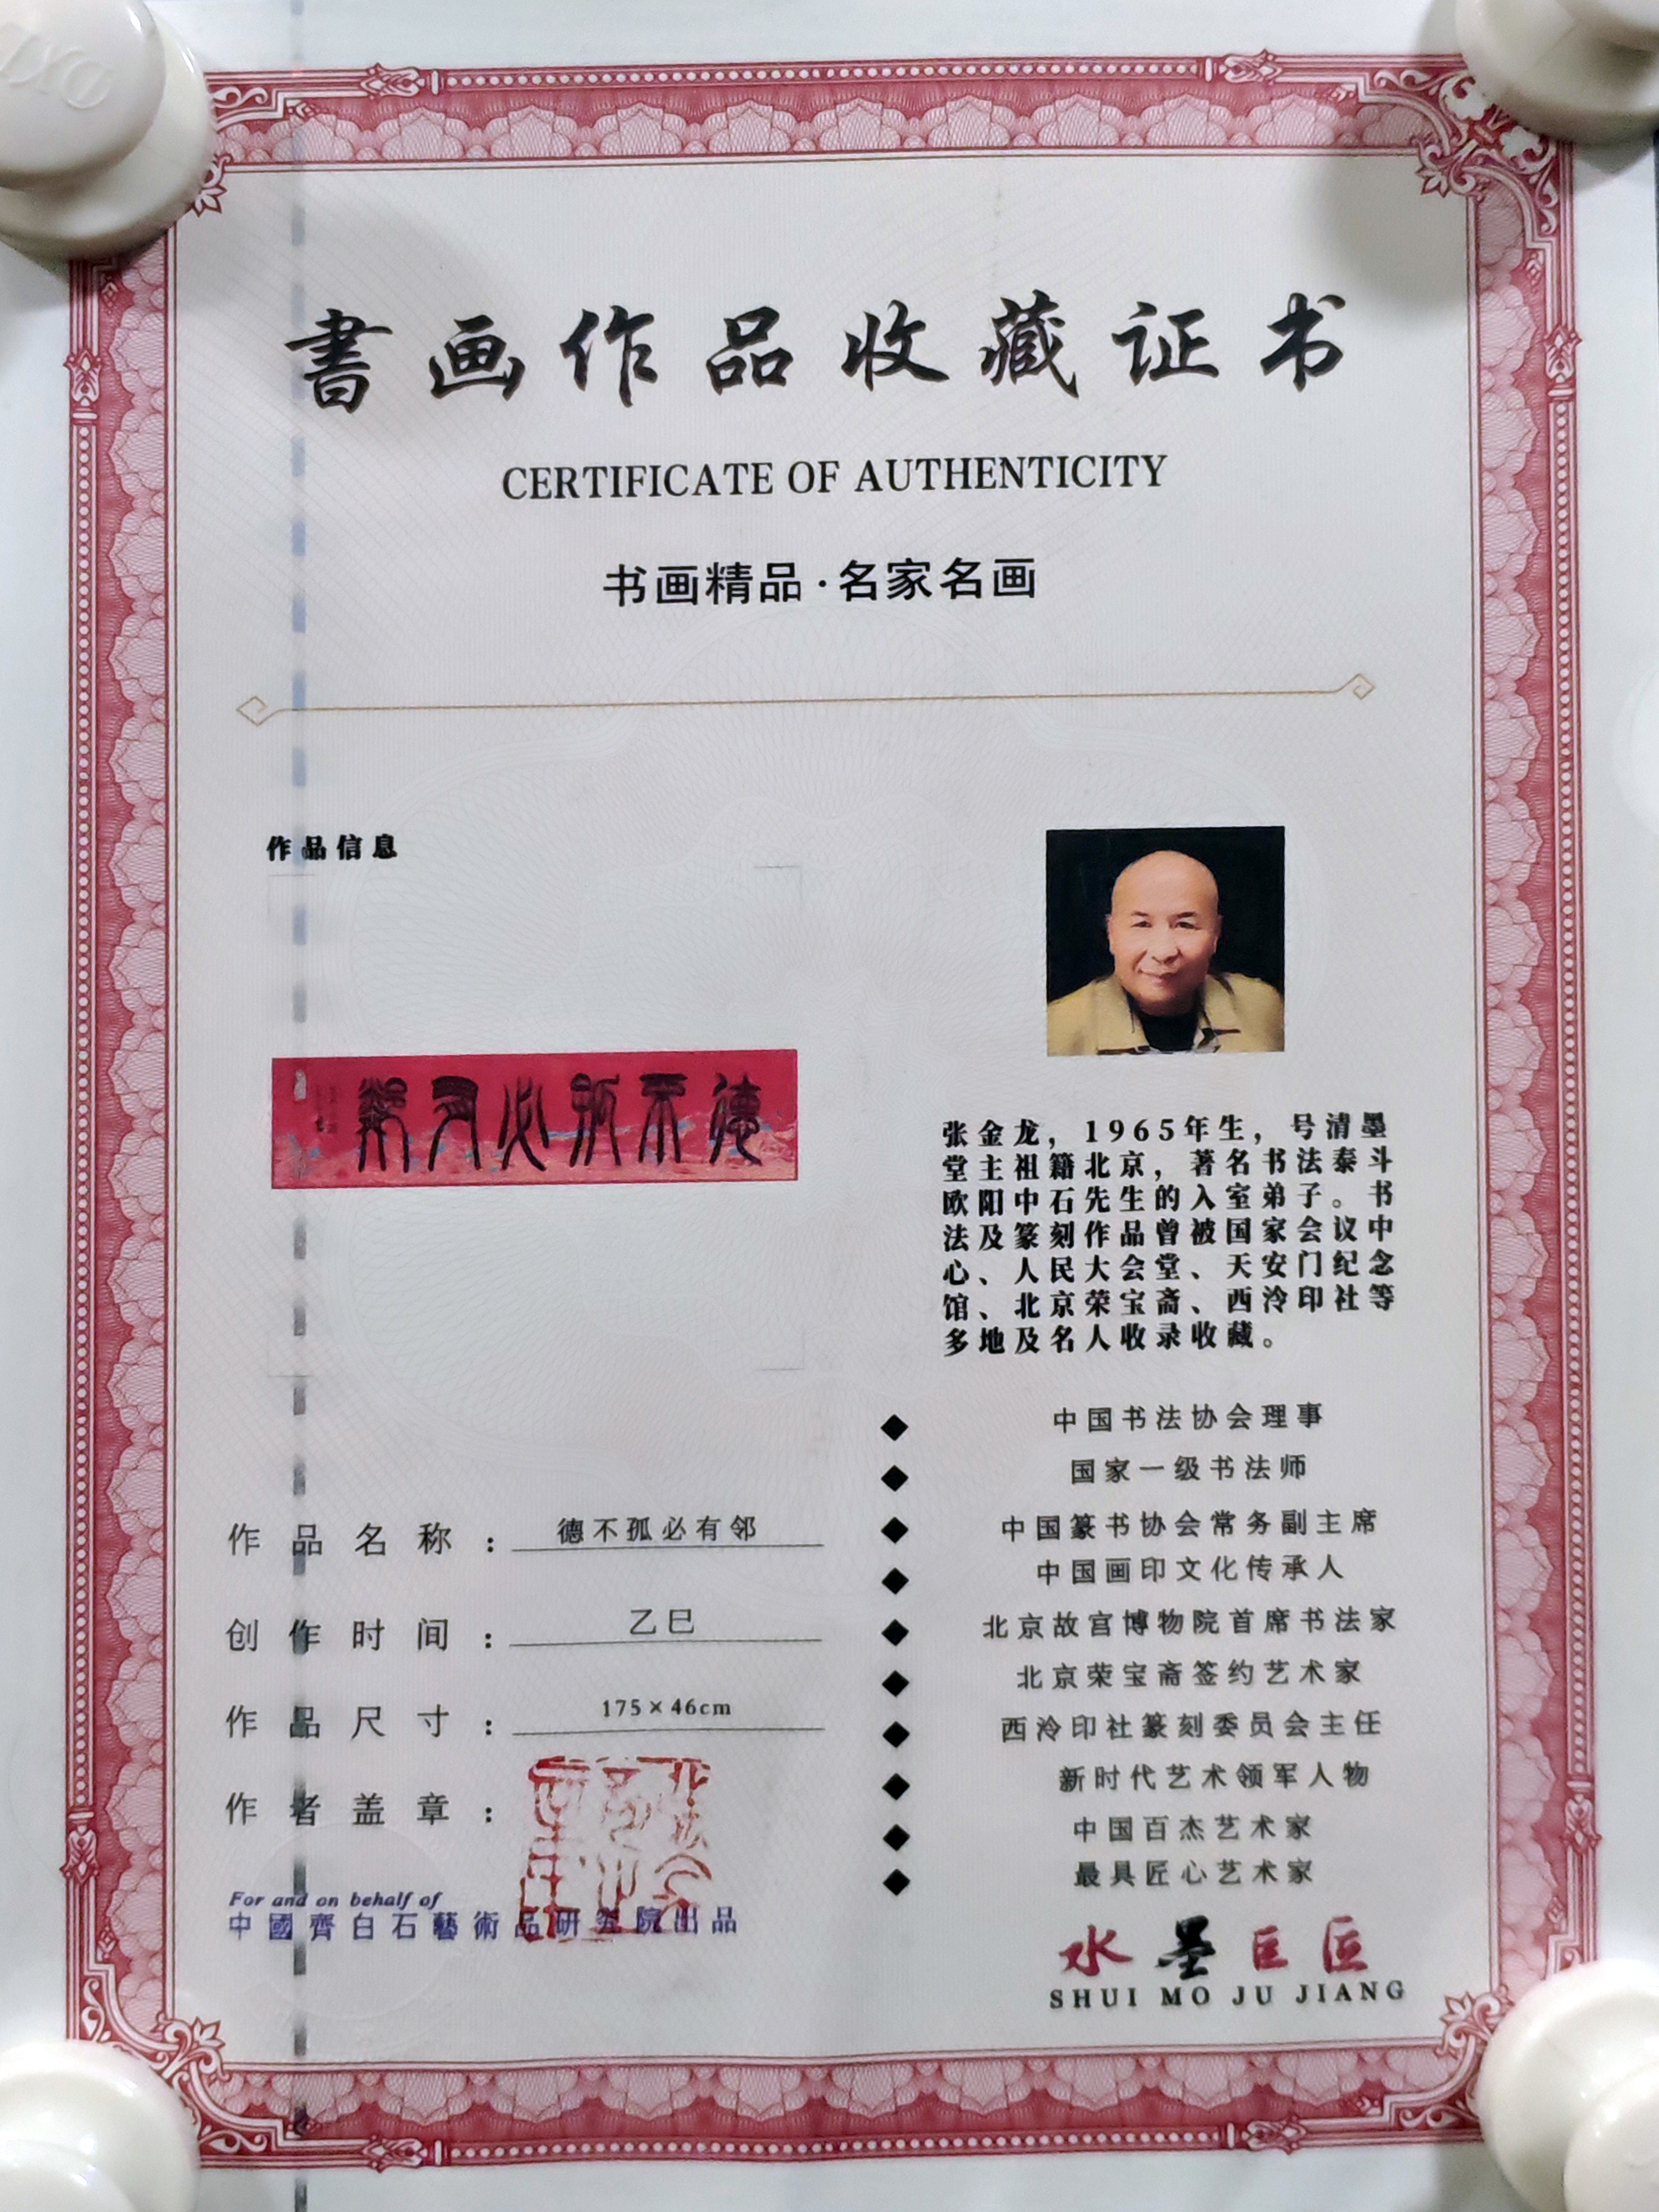 書画作品收藏证书
CERTIFICATE OF AUTHENTICITY
书画精品·名家名画
作品信息
德不孤必有邻
张金龙，1965年生，号清墨
堂主祖籍北京，著名书法泰斗
欧阳中石先生的入室弟子。书
法及篆刻作品曾被国家会议中
心、人民大会堂、天安门纪念
馆、北京荣宝斋、西泠印社等
多地及名人收录收藏。
作品名称：德不孤必有邻
创作时间：乙巳
作品尺寸：175×46cm
作者盖章：
For and on behalf of
中國齊白石藝術品研究院出品
◆中国书法协会理事
◆国家一级书法师
◆中国篆书协会常务副主席
◆中国画印文化传承人
◆北京故宫博物院首席书法家
◆北京荣宝斋签约艺术家
◆西泠印社篆刻委员会主任
◆新时代艺术领军人物
◆中国百杰艺术家
◆最具匠心艺术家
水墨巨匠
SHUI MO JU JIANG